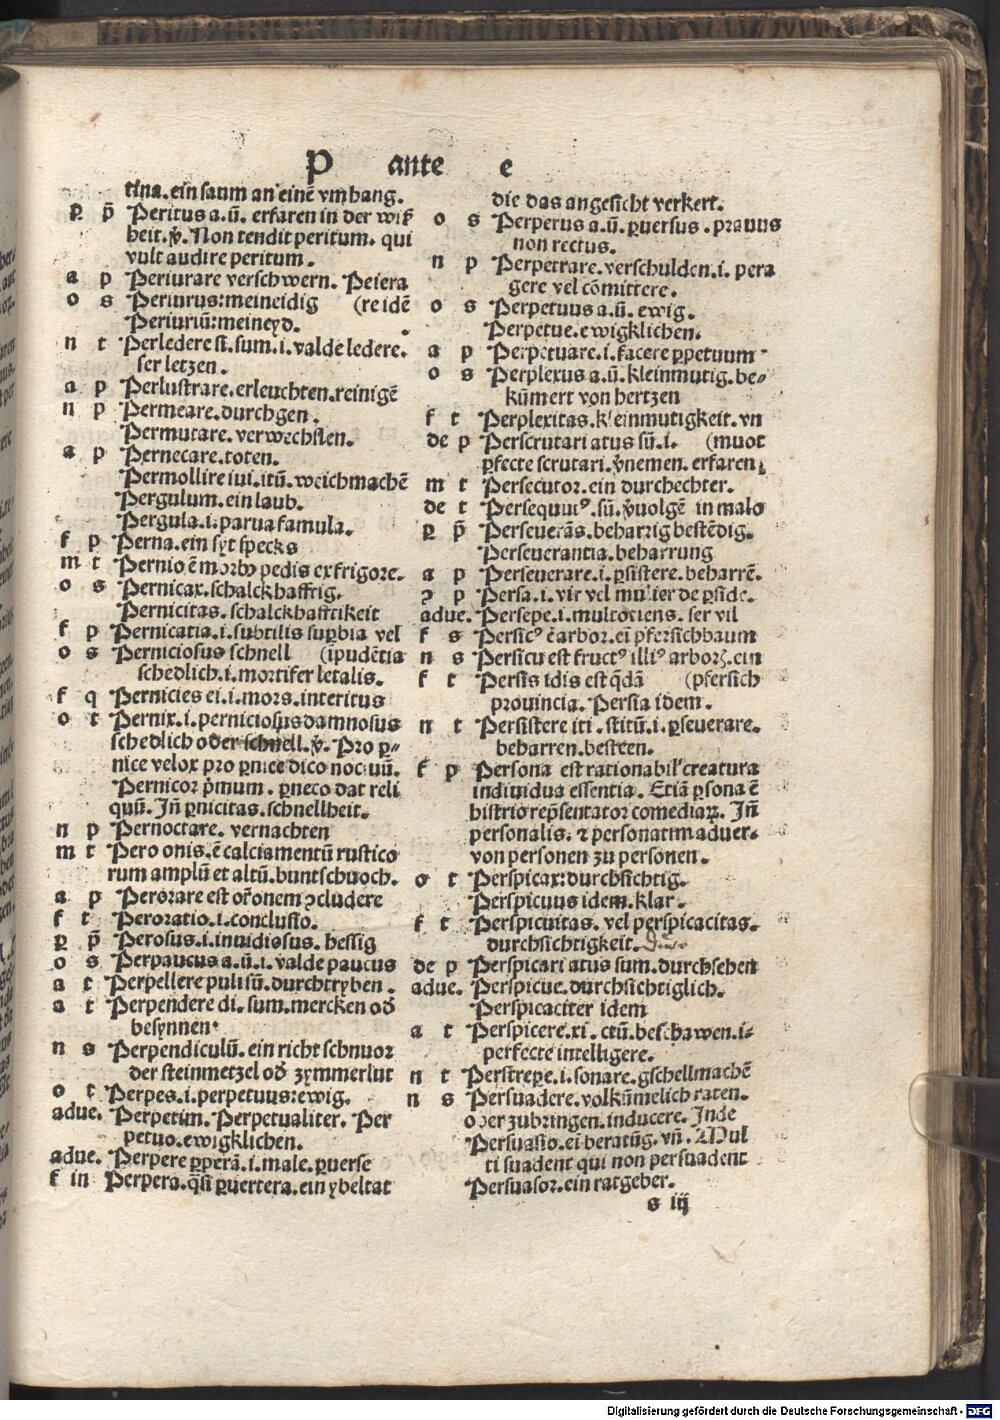 P ante e
tina. ein saum an einē vmbang.
p p̄ Peritus a. ū. erfaren in der wiß
heit. ꝟ. Non tendit peritum. qui
vult audire peritum.
a p Periurare verschwern. Peiera
o s Periurus: meineidig (re idē
Periuriū: meineyd.
n t Perledere si. sum. i. valde ledere.
ser letzen.
a p Perlustrare. erleuchten. reinigē
n p Permeare. durchgen.
Permutare. verwechslen.
a p Pernecare. toten.
Permollire iui. itū. weichmachē
Pergulum. ein laub.
Pergula. i. parua famula.
f p Perna. ein syt specks
m t Pernio ē morbꝰ pedis ex frigore.
o s Pernicax. schalckhafftig.
Pernicitas. schalckhafftikeit
f p Pernicatia. i. subtilis suꝑbia vel
o s Perniciosus schnell (īpudētia
schedlich. i. mortifer letalis.
f q Pernicies ei. i. mors. interitus
o t Pernix. i. perniciosus damnosus
schedlich oder schnell. ꝟ. Pro ꝑ-
nice velox pro ꝑnice dico nocuū.
Pernicor p̄mum. ꝑneco dat reli
quū. Jn̄ ꝑnicitas. schnellheit.
n p Pernoctare. vernachten
m t Pero onis. ē calciamentū rustico
rum amplū et altū. buntschuoch.
a p Perorare est or̄onem ꝯcludere
f t Peroratio. i. conclusio.
p p̄ Perosus. i. inuidiosus. hessig
o s Perpaucus a. ū. i. valde paucus
a t Perpellere puli sū. durchtryben.
a t Perpendere di. sum. mercken od̄
besynnen.
n s Perpendiculū. ein richtschnuor
der steinmetzel od̄ zymmerlut
o t Perpes. i. perpetuus: ewig.
adue. Perpetim. Perpetualiter. Per
petuo. ewigklichen.
adue. Perpere ꝑperā. i. male. ꝑuerse
f in Perpera. q̄si ꝑuertera. ein ybeltat
die das angesicht verkert.
o s Perperus a. ū. ꝑuersus. prauus
non rectus.
n p Perpetrare. verschulden. i. pera
gere vel cōmittere.
o s Perpetuus a. ū. ewig.
Perpetue. ewigklichen.
a p Perpetuare. i. facere ꝑpetuum
o s Perplexus a. ū. kleinmutig. be-
kūmert von hertzen
f t Perplexitas. kleinmutigkeit. vn
de p Perscrutari atus sū. i. (muot
ꝑfecte scrutari. v̄nemen. erfaren
m t Persecutor. ein durchechter.
de t Persequutꝰ. sū. v̄uolgē in malo
p p̄ Perseuerās. beharrig bestēdig.
Perseuerantia. beharrung
a p Perseuerare. i. ꝑsistere. beharrē.
ꝯ p Persa. i. vir vel mulier de ꝑside.
adue. Persepe. i. multotiens. ser vil
f s Persicꝰ ē arbor. ei pfersichbaum
n s Persicū est fructꝰ illiꝰ arborꝝ. ein
f t Persis idis est q̄dā (pfersich
prouincia. Persia idem.
n t Persistere iti. stitū. i. ꝑseuerare.
beharren. besteen.
f p Persona est rationabil' creatura
indiuidua essentia. Etiā ꝑsona ē
histrio rep̄sentator comediaꝝ. Jn̄
personalis. ⁊ personatim aduer.
von personen zu personen.
o t Perspicax: durchsichtig.
Perspicuus idem. klar.
f t Perspicuitas. vel perspicacitas.
durchsichtigkeit.
de p Perspicari atus sum. durchsehen
adue. Perspicue. durchsichtiglich.
Perspicaciter idem
a t Perspicere. xi. ctū. beschawen. i-
perfecte intelligere.
n t Perstrepe. i. sonare. gschellmachē
n s Persuadere. volkūmelich raten.
oder zubringen. inducere. Jnde
Persuasio. ei beratūg. vn̄. Mul
ti suadent qui non persuadent
Persuasor. ein ratgeber.
s iij
Digitalisierung gefördert durch die Deutsche Forschungsgemeinschaft - DFG